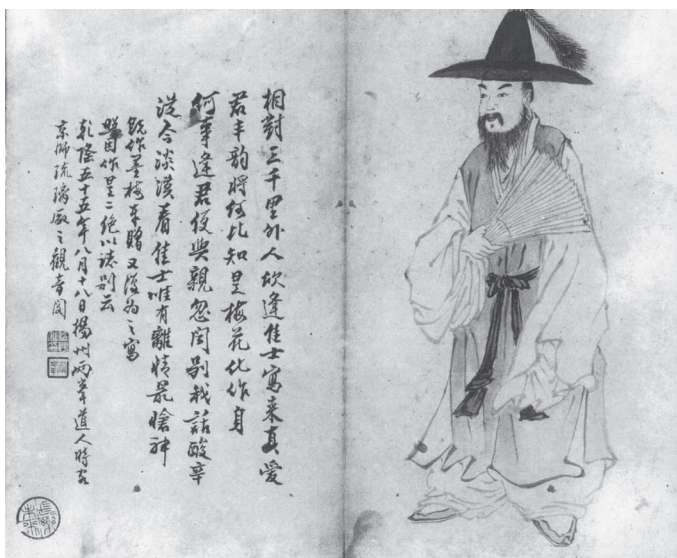 相對三千里外人欣逢佳士寫来真愛
君丰韵將何比知是梅花化作身
何事逢君便與親忽聞别我話酸辛
從今淡漠看佳士唯有離情最愴神
既作墨梅奉贈又復為之寫
照因作是二絶以誌别云
乾隆五十五年八月十八日揚州兩峯道人時客
京師琉璃廠之觀音閣